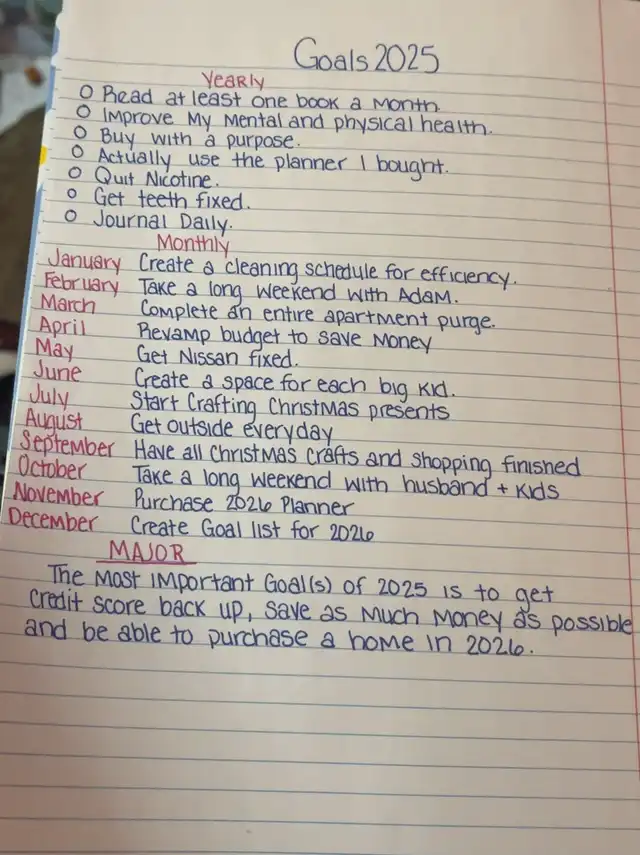 Goals 2025
Yearly
O Read at least one book a Month.
O Improve My Mental and physical health.
O Buy with a purpose.
O Actually use the planner I bought.
O Quit Nicotine.
O Get teeth fixed.
O Journal Daily.
Monthly
January Create a cleaning schedule for efficiency.
February Take a long weekend with Adam.
March Complete an entire apartment purge.
April Revamp budget to save Money
May Get Nissan fixed.
June Create a space for each big kid.
July Start Crafting Christmas presents
August Get outside everyday
September Have all Christmas crafts and shopping finished
October Take a long weekend with husband + kids
November Purchase 2026 Planner
December Create Goal list for 2026
MAJOR
The Most Important Goal(s) of 2025 is to get
credit score back up, save as Much Money as possible
and be able to purchase a home in 2026.